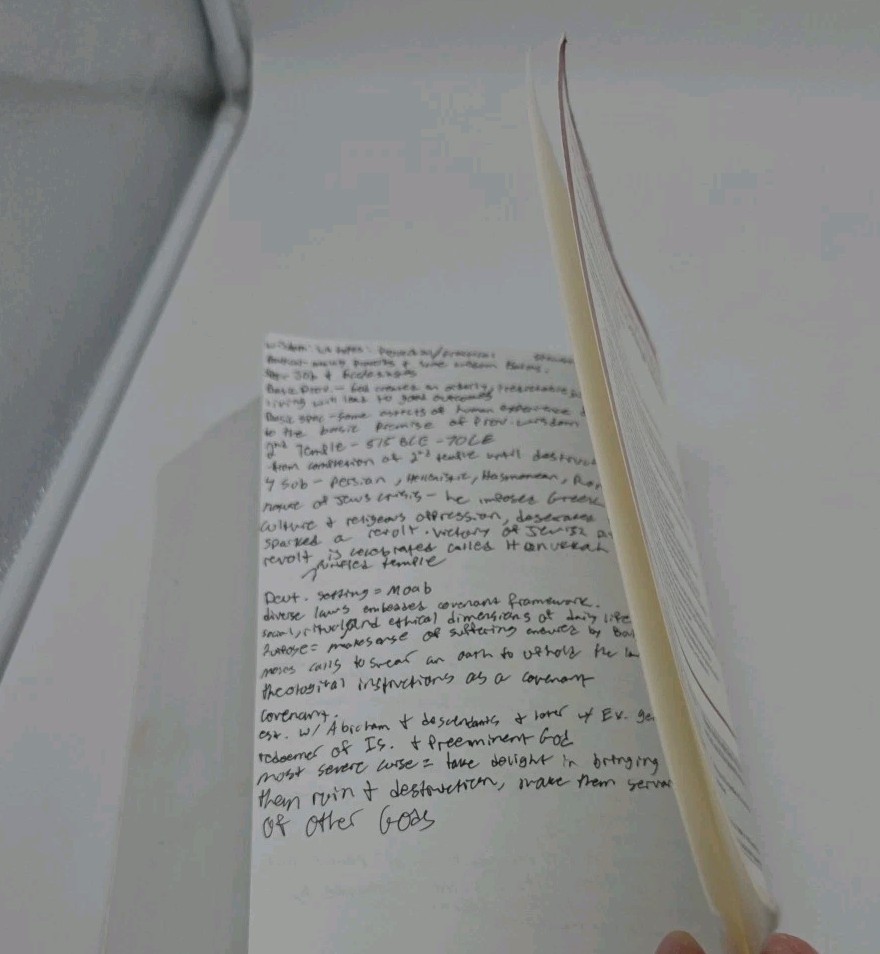 Wisdom:
+ some wisdom Psalms.
Job + Ecclesiastes
Basic Prov. - God creates an orderly, predictable
living will lead to good outcomes
Basic spec - some aspects of human experience
to the basic premise of Prov. wisdom
2nd Temple - 515 BCE - 70 CE
from completion of 2nd temple until destruct
4 sub - Persian, Hellenistic, Hasmonean, Ro
nature of Jews crisis - he imposes Greek
culture + religeous oppression, desecrates
sparked a revolt. victory of Jewish
revolt is celebrated called Hanukkah
temple
Deut. setting = Moab
diverse laws embedded covenant framework.
social, ritual, and ethical dimensions of daily life
Purpose = make sense of suffering by Ba
moses calls to swear an oath to uphold the la
theological instructions as a covenant
Covenant.
est. w/ Abraham + descendants + later w/ Ev.
redeemer of Is. + Preeminent God
most severe curse = take delight in bringing
them ruin + destruction, make them serva
of other Gods